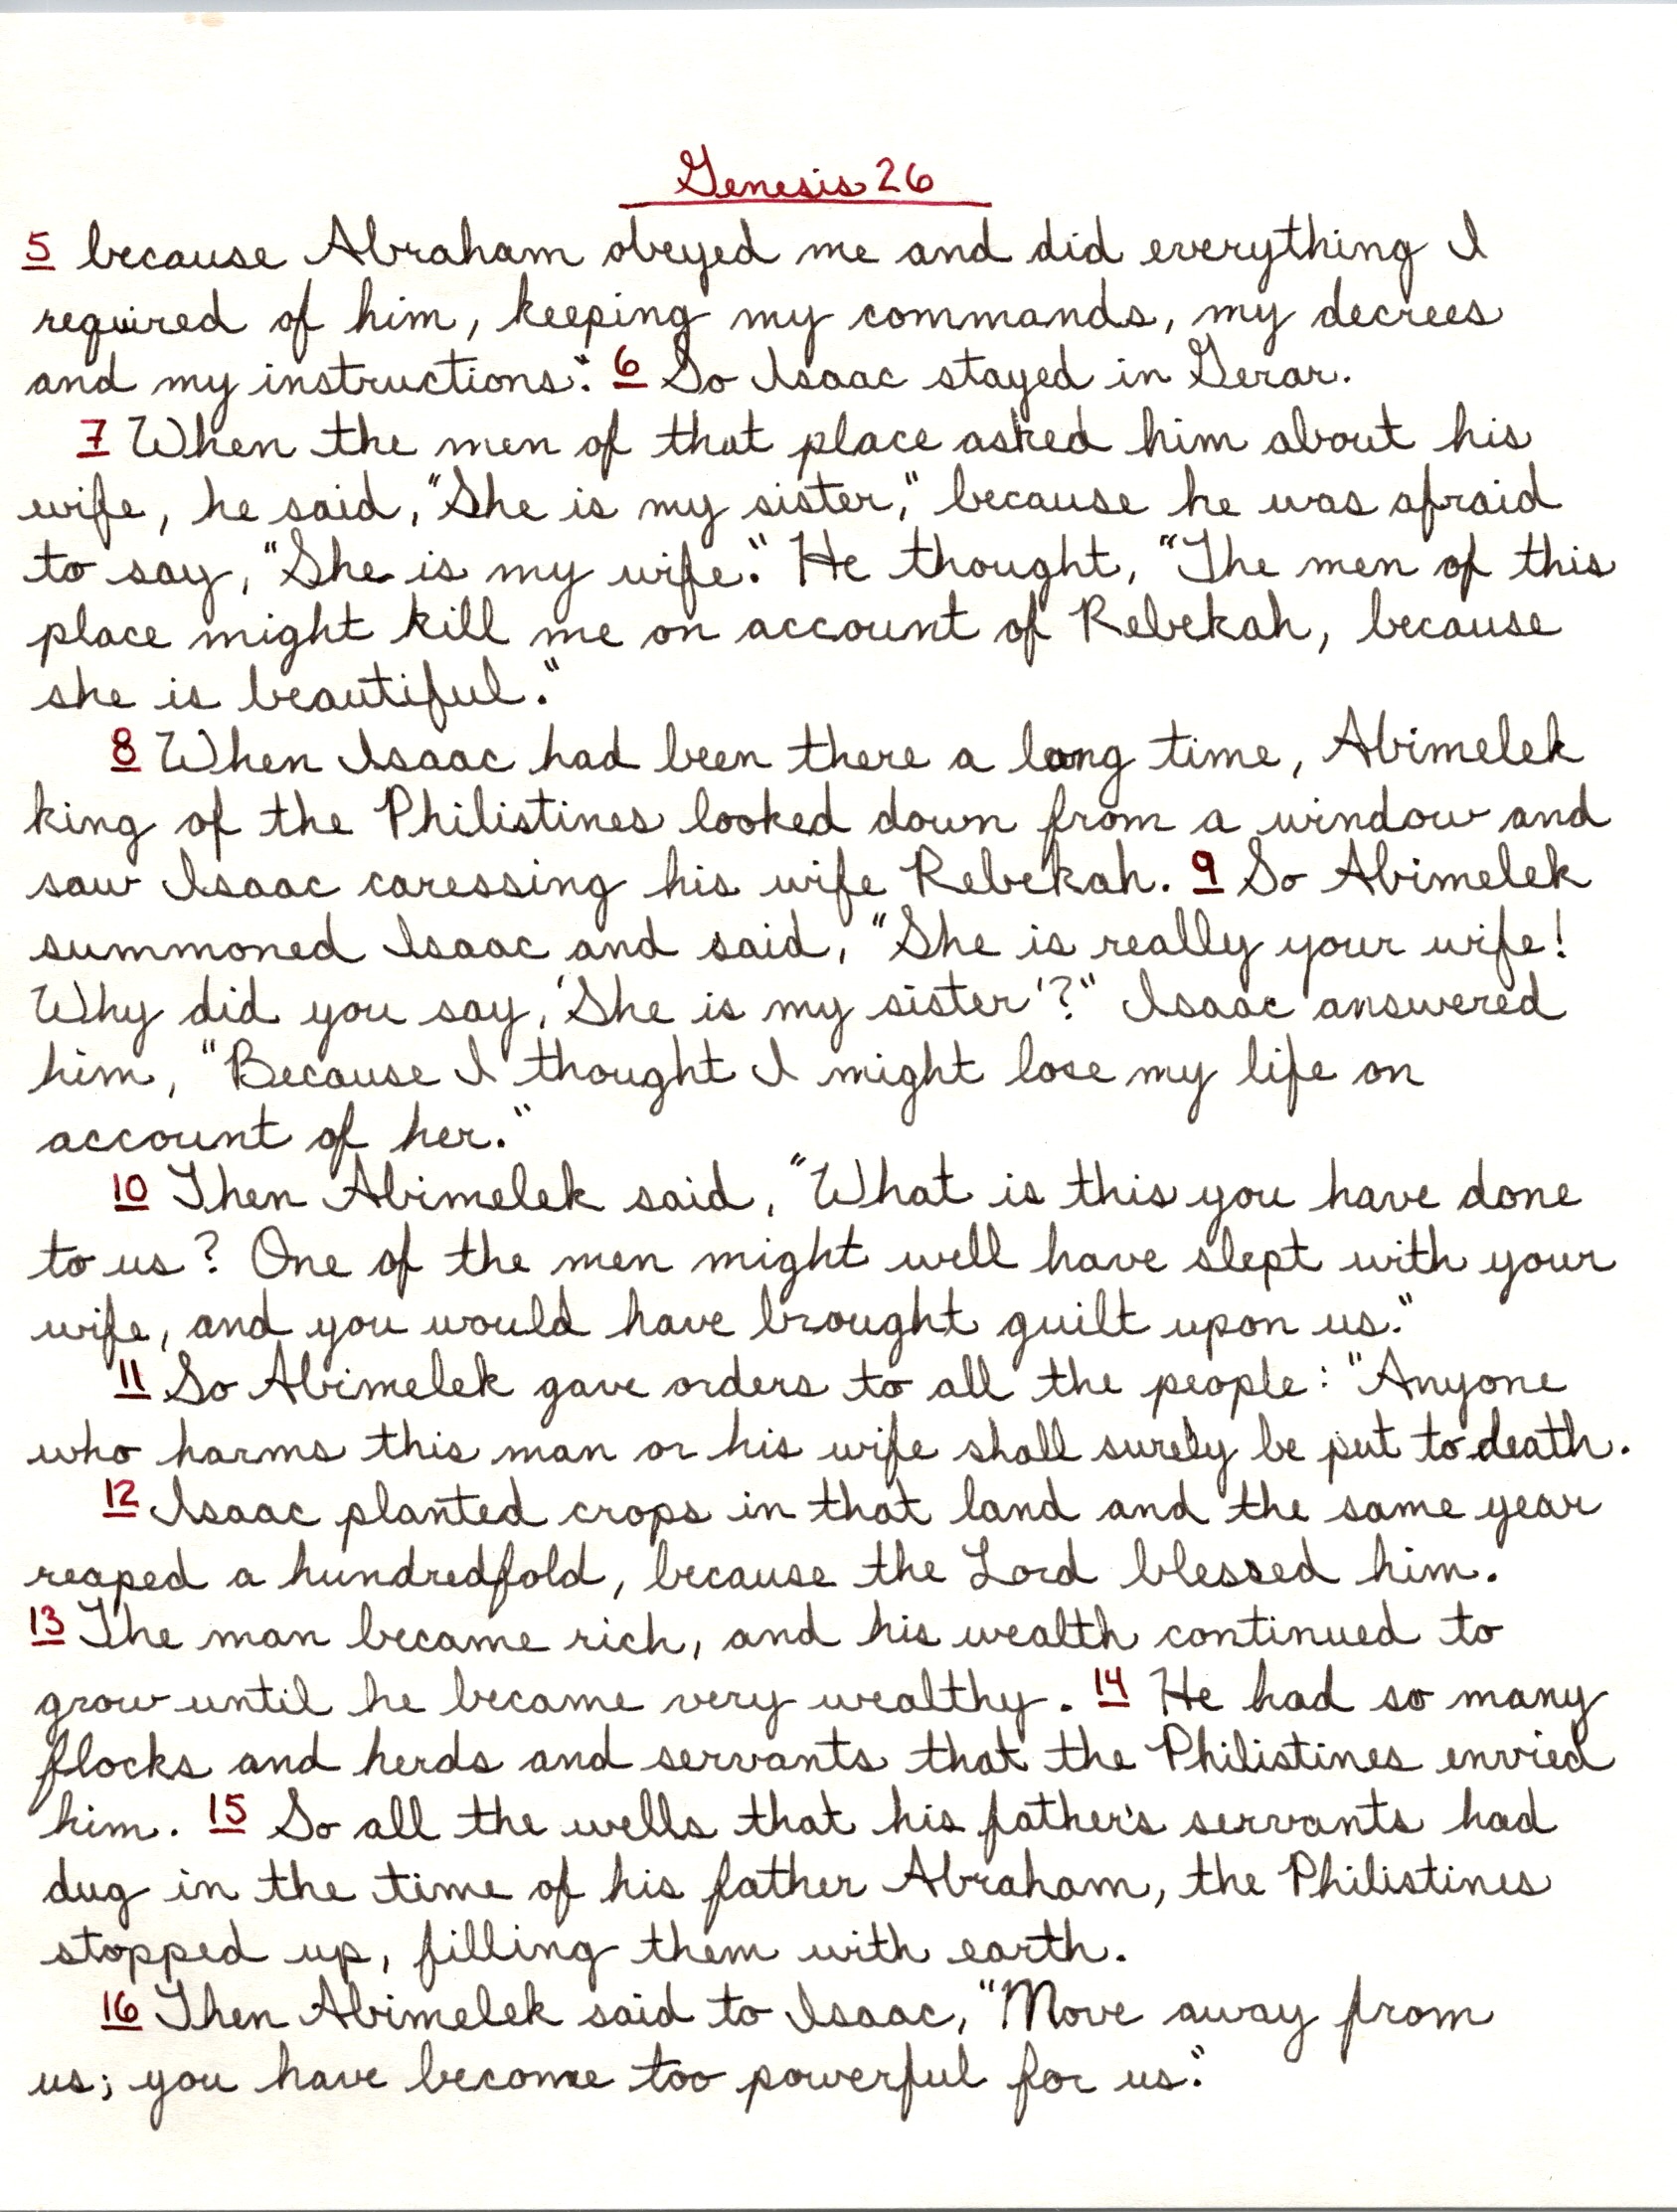 Genesis 26
5 because Abraham obeyed me and did everything I
required of him, keeping my commands, my decrees
and my instructions." 6 So Isaac stayed in Gerar.
7 When the men of that place asked him about his
wife, he said, "She is my sister," because he was afraid
to say, "She is my wife." He thought, "The men of this
place might kill me on account of Rebekah, because
she is beautiful."
8 When Isaac had been there a long time, Abimelek
king of the Philistines looked down from a window and
saw Isaac caressing his wife Rebekah. 9 So Abimelek
summoned Isaac and said, "She is really your wife!
Why did you say, 'She is my sister'?" Isaac answered
him, "Because I thought I might lose my life on
account of her."
10 Then Abimelek said, "What is this you have done
to us? One of the men might well have slept with your
wife, and you would have brought guilt upon us."
11 So Abimelek gave orders to all the people: "Anyone
who harms this man or his wife shall surely be put to death.
12 Isaac planted crops in that land and the same year
reaped a hundredfold, because the Lord blessed him.
13 The man became rich, and his wealth continued to
grow until he became very wealthy. 14 He had so many
flocks and herds and servants that the Philistines envied
him. 15 So all the wells that his father's servants had
dug in the time of his father Abraham, the Philistines
stopped up, filling them with earth.
16 Then Abimelek said to Isaac, "Move away from
us; you have become too powerful for us."